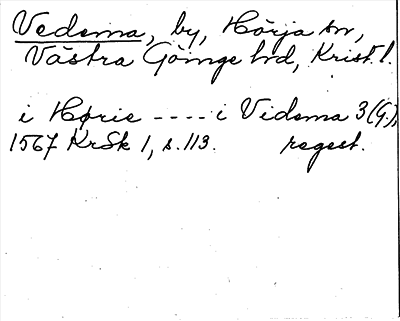 Vedema, by, Hörja sn,
Västra Göinge hd, Krist. l.
i Hørie ---- i Videma 3 (G.),
1567 KrSk 1, s. 113. regest.